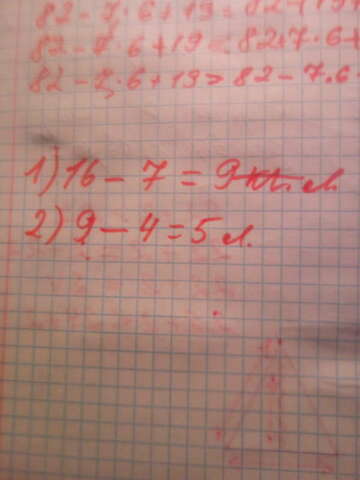 82 - 7·6 + 19 <
82 - 7·6 + 19 < 82+7·6+
82 - 7·6 + 19 > 82 - 7·6
1) 16 - 7 = 9 л.
2) 9 - 4 = 5 л.